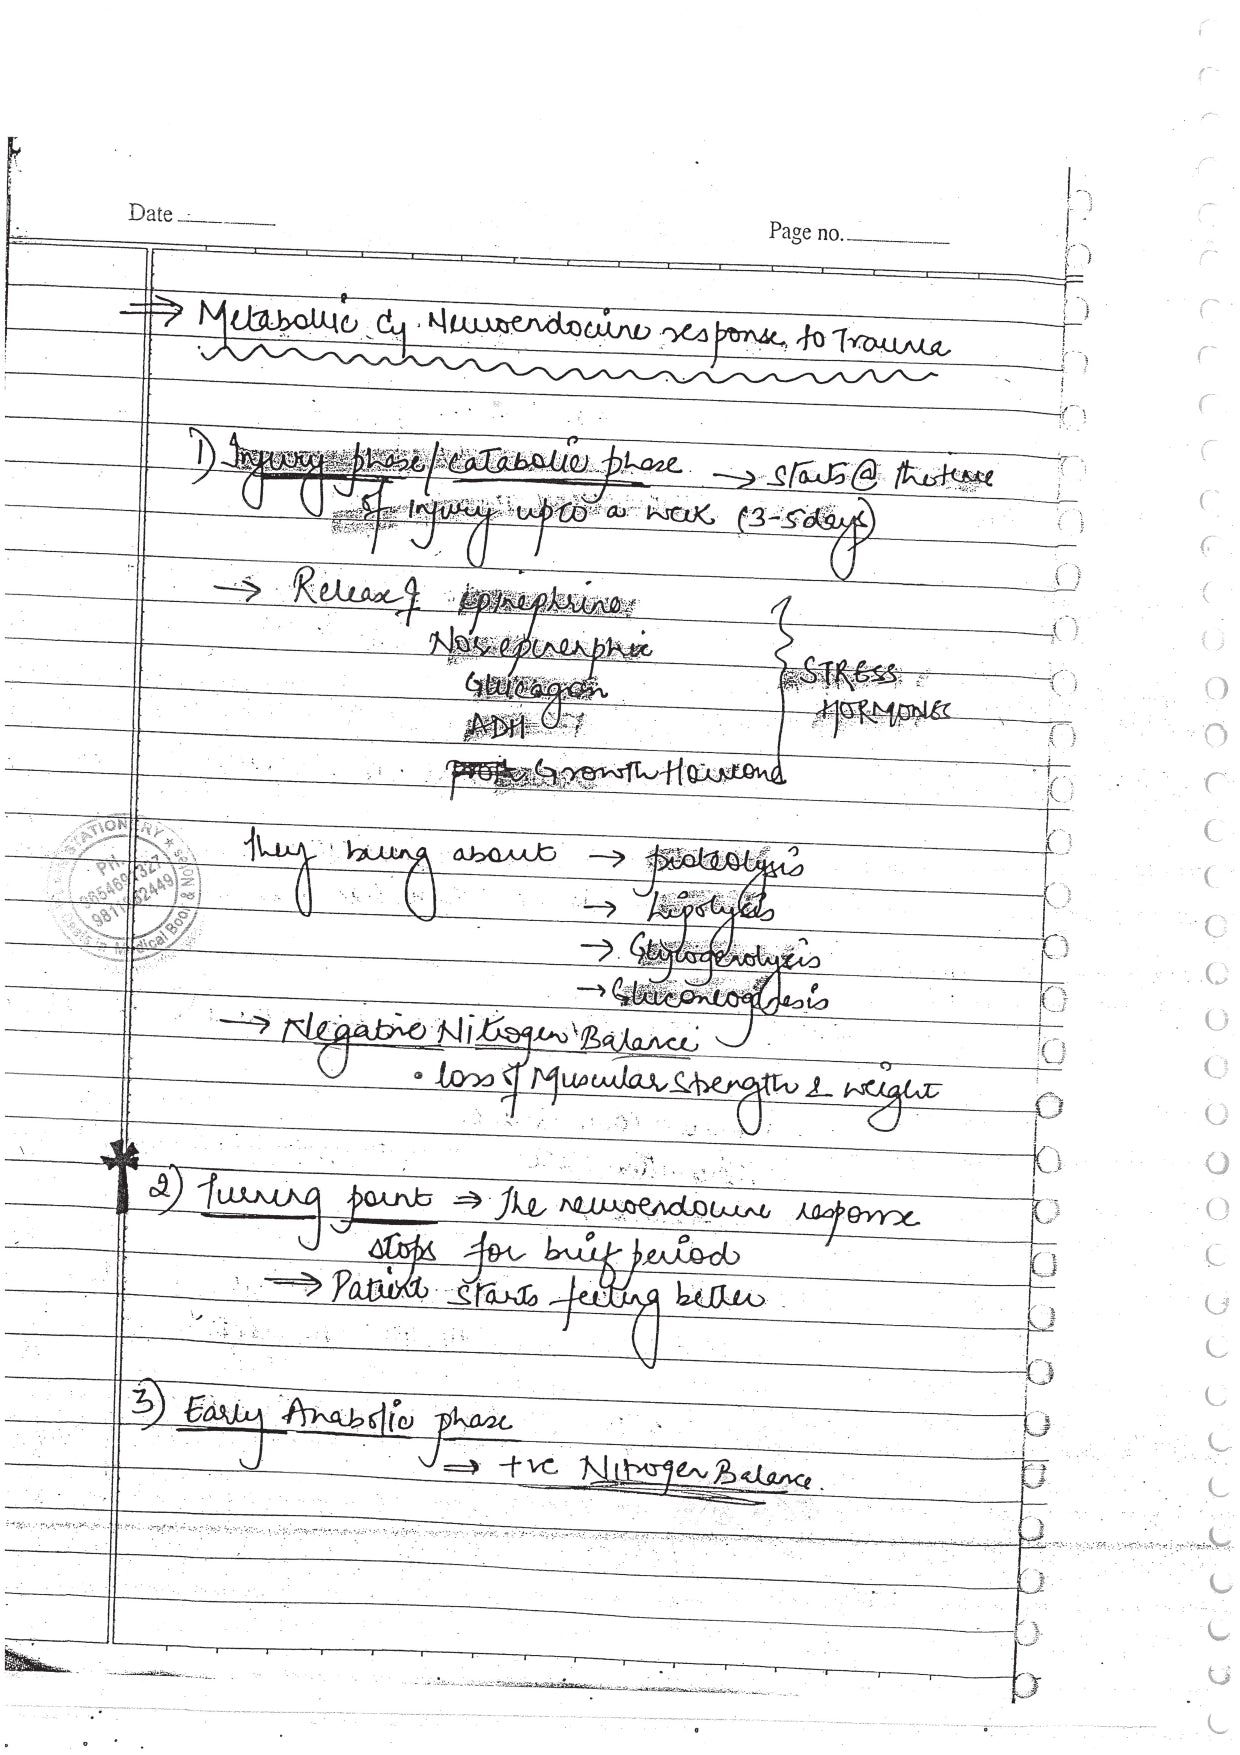 Date
Page no.
⇒ Metabolic & Neuroendocrine response to Trauma
1) Injury phase/catabolic phase → starts @ the time
of injury upto a week (3-5 days)
→ Release of epinephrine
Nor epinerphic
Glucagon
ADH
STRESS
HORMONES
Growth Hormone
They bring about → proteolysis
→ Lipolysis
→ Glycogenolysis
→ Gluconeogenesis
→ Negative Nitrogen Balance
• loss of Muscular Strength & weight
2) Turning point ⇒ The neuroendocrine response
stops for brief period
⇒ Patient starts feeling better
3) Early Anabolic phase
⇒ +ve Nitrogen Balance.
STATIONERY
PH.